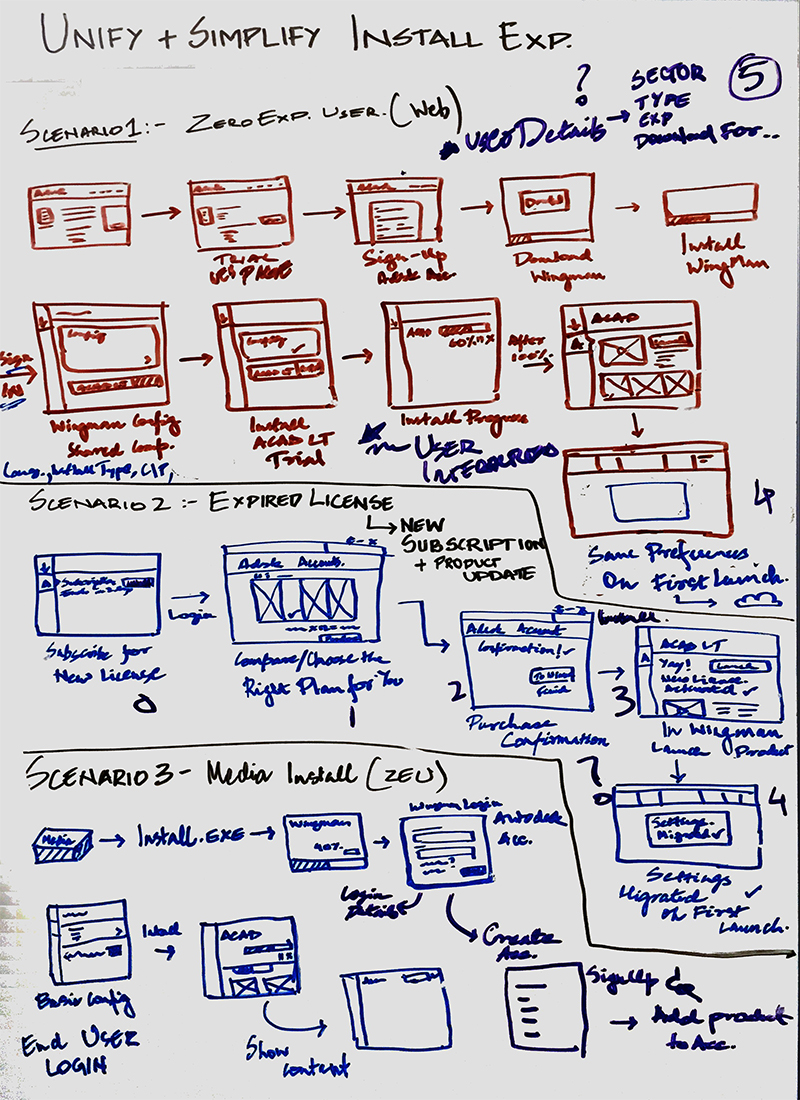 UNIFY + SIMPLIFY INSTALL EXP.
5
?
SECTOR
TYPE
EXP
Download For...
User Details
SCENARIO 1:- ZERO EXP. USER. (Web)
TRIAL
Sign-Up
Adsk Acc.
Download
Wingman
Install
WingMan
Sign
IN
Config
Wingman Config
Shared Comp.
Lang., Install Type, CIP,
Install
ACAD LT
Trial
60%
Install Progress
USER
After
100%
ACAD
Same Preferences
On First Launch.
4
SCENARIO 2:- EXPIRED LICENSE
NEW
SUBSCRIPTION
+ PRODUCT
UPDATE
Subscribe for
New License
0
Login
Adsk Accounts.
Compare/Choose the
Right Plan for You
1
Adsk Account
Confirmation!✓
2
Purchase
Confirmation
Install.
3
ACAD LT
Yay!
Launch
New License.
Activated ✓
In Wingman
Launch Product
?
4
Settings
Migrated ✓
Settings
Migrated ✓
on First
Launch.
SCENARIO 3 - Media Install (ZEU)
Media
Install.EXE
Wingman
40%
Wingman Login
Autodesk
Acc.
Login
Details
Create
Acc.
Basic Config
End USER
LOGIN
Install
ACAD
Show
Content
SignUp &
Add product
to Acc.